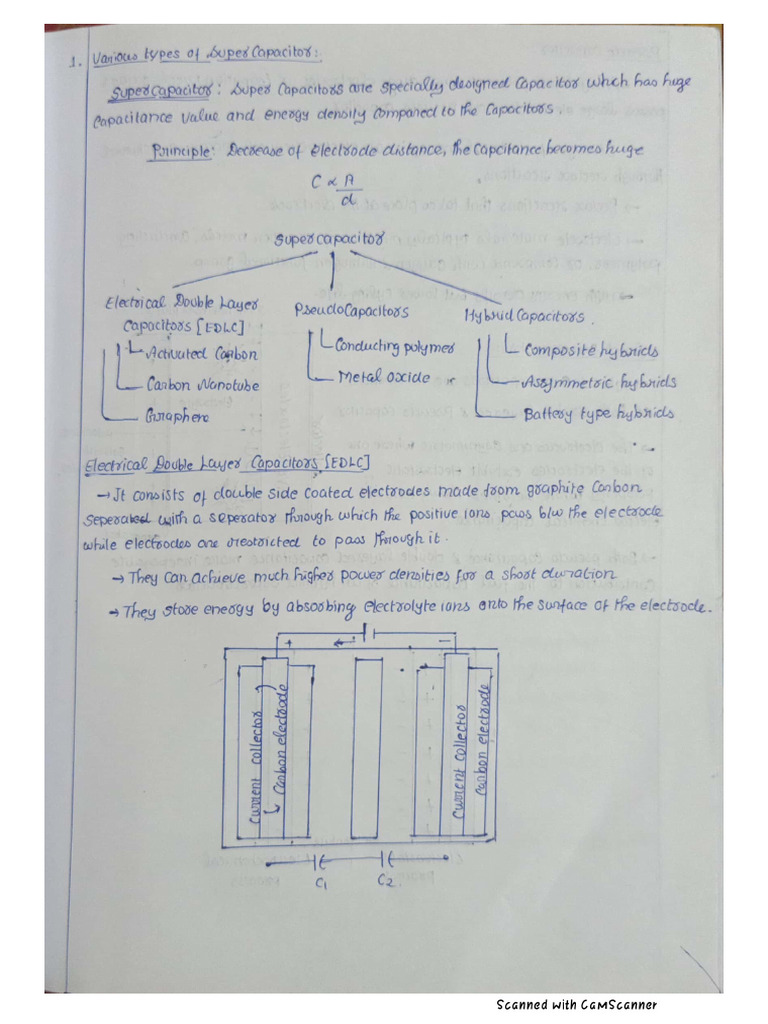 1. Various types of Super Capacitor:
Supercapacitor: Super Capacitors are specially designed capacitor which has huge
Capacitance value and energy density compared to the Capacitors.
Principle: Decrease of electrode distance, the Capcitance becomes huge
C ∝ A/d
Supercapacitor
Electrical Double Layer Capacitors [EDLC]
Activated Carbon
Carbon Nanotube
Graphene
PseudoCapacitors
Conducting polymer
Metal oxide
HybridCapacitors.
Composite hybrids
Assymmetric hybrids
Battery type hybrids
Electrical Double Layer Capacitors [EDLC]
→ It consists of double side coated electrodes made from graphite Carbon
Seperated with a seperator through which the positive ions pass b/w the electrode
while electrodes are restricted to pass through it.
→ They can achieve much higher power densities for a short duration
→ They store energy by absorbing electrolyte ions onto the surface of the electrode.
+ ← −
Current collector
Carbon electrode
Current collector
Carbon electrode
C1 C2.
Scanned with CamScanner